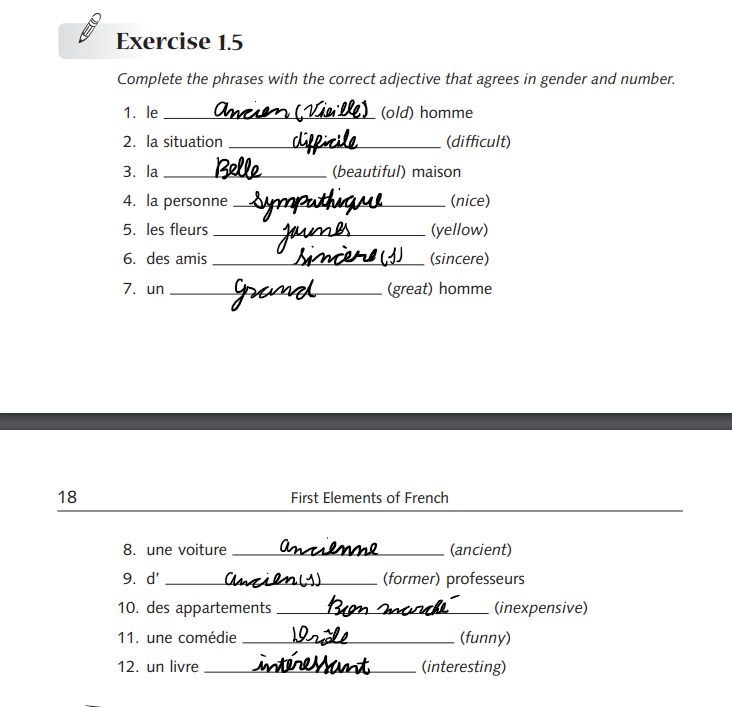 Exercise 1.5
Complete the phrases with the correct adjective that agrees in gender and number.
1. le Ancien (Vieille) (old) homme
2. la situation difficile (difficult)
3. la Belle (beautiful) maison
4. la personne sympathique (nice)
5. les fleurs jaunes (yellow)
6. des amis sincère(s) (sincere)
7. un Grand (great) homme
18 First Elements of French
8. une voiture ancienne (ancient)
9. d' ancien(s) (former) professeurs
10. des appartements Bon marché (inexpensive)
11. une comédie Drôle (funny)
12. un livre intéressant (interesting)